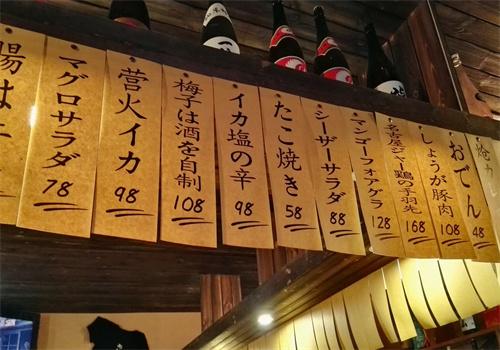 マグロサラダ
78
営火イカ
98
梅子は酒を自制
108
イカ塩の辛
98
たこ焼き
58
シーザーサラダ
88
マンゴーフォアグラ
128
名古屋ジャー鶏の手羽先
168
しょうが豚肉
108
おでん
48